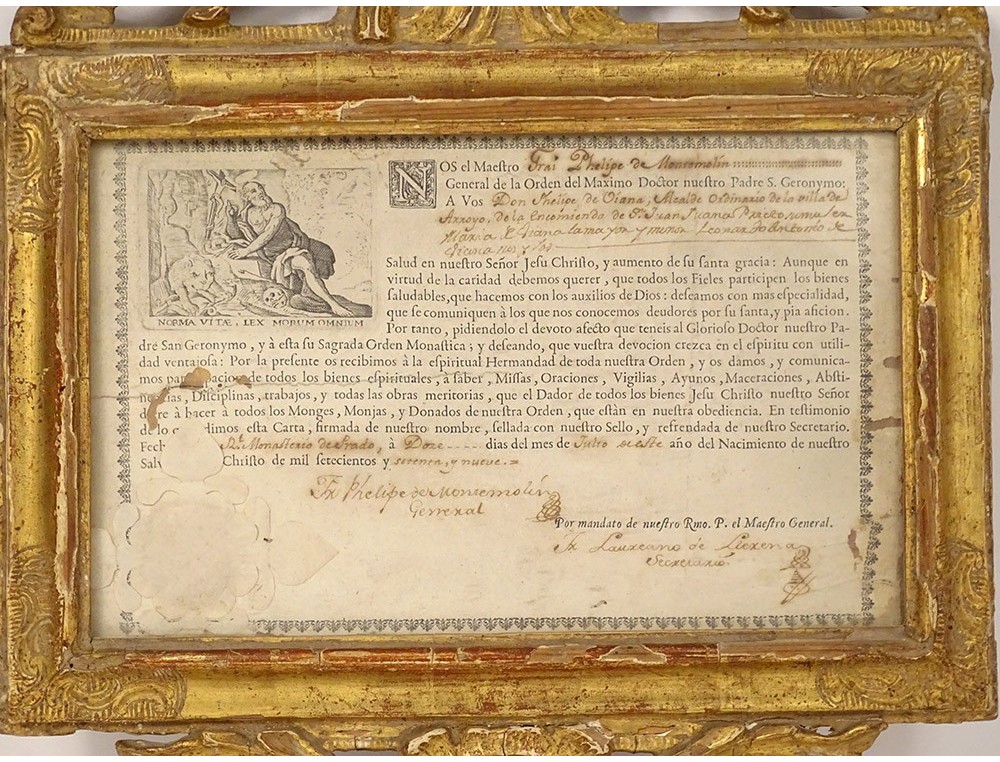 NOS el Maestro Frai Phelipe de Montemolin
General de la Orden del Maximo Doctor nuestro Padre S. Geronymo:
A Vos Don Phelipe de Viana, Alcalde Ordinario de la villa de
Arroyo, de la Encomienda de Sn. Juan, Juana su
Maria Viana la mayor y menor Leonardo Antonio de
Salud en nuestro Señor Jesu Christo, y aumento de su santa gracia: Aunque en
virtud de la caridad debemos querer, que todos los Fieles participen los bienes
saludables, que hacemos con los auxilios de Dios: deseamos con mas especialidad,
que se comuniquen à los que nos conocemos deudores por su santa, y pia aficion.
Por tanto, pidiendolo el devoto afecto que teneis al Glorioso Doctor nuestro Pa-
NORMA VITÆ, LEX MORUM OMNIUM
dre San Geronymo, y à esta su Sagrada Orden Monastica; y deseando, que vuestra devocion crezca en el espiritu con utili-
dad ventajosa: Por la presente os recibimos à la espiritual Hermandad de toda nuestra Orden, y os damos, y comunica-
mos par ipacion de todos los bienes espirituales, à saber, Missas, Oraciones, Vigilias, Ayunos, Maceraciones, Absti-
nencias, Disciplinas, trabajos, y todas las obras meritorias, que el Dador de todos los bienes Jesu Christo nuestro Señor
ere à hacer à todos los Monges, Monjas, y Donados de nuestra Orden, que estàn en nuestra obediencia. En testimonio
de lo dimos esta Carta, firmada de nuestro nombre, sellada con nuestro Sello, y refrendada de nuestro Secretario.
Fech Rl. Monasterio de Prado, à Doze dias del mes de Julio de este año del Nacimiento de nuestro
Salv Christo de mil setecientos y setenta, y nueve.=
Fr. Phelipe de Montemolin
General
Por mandato de nuestro Rmo. P. el Maestro General.
Fr. Laureano de Llerena
Secretario.